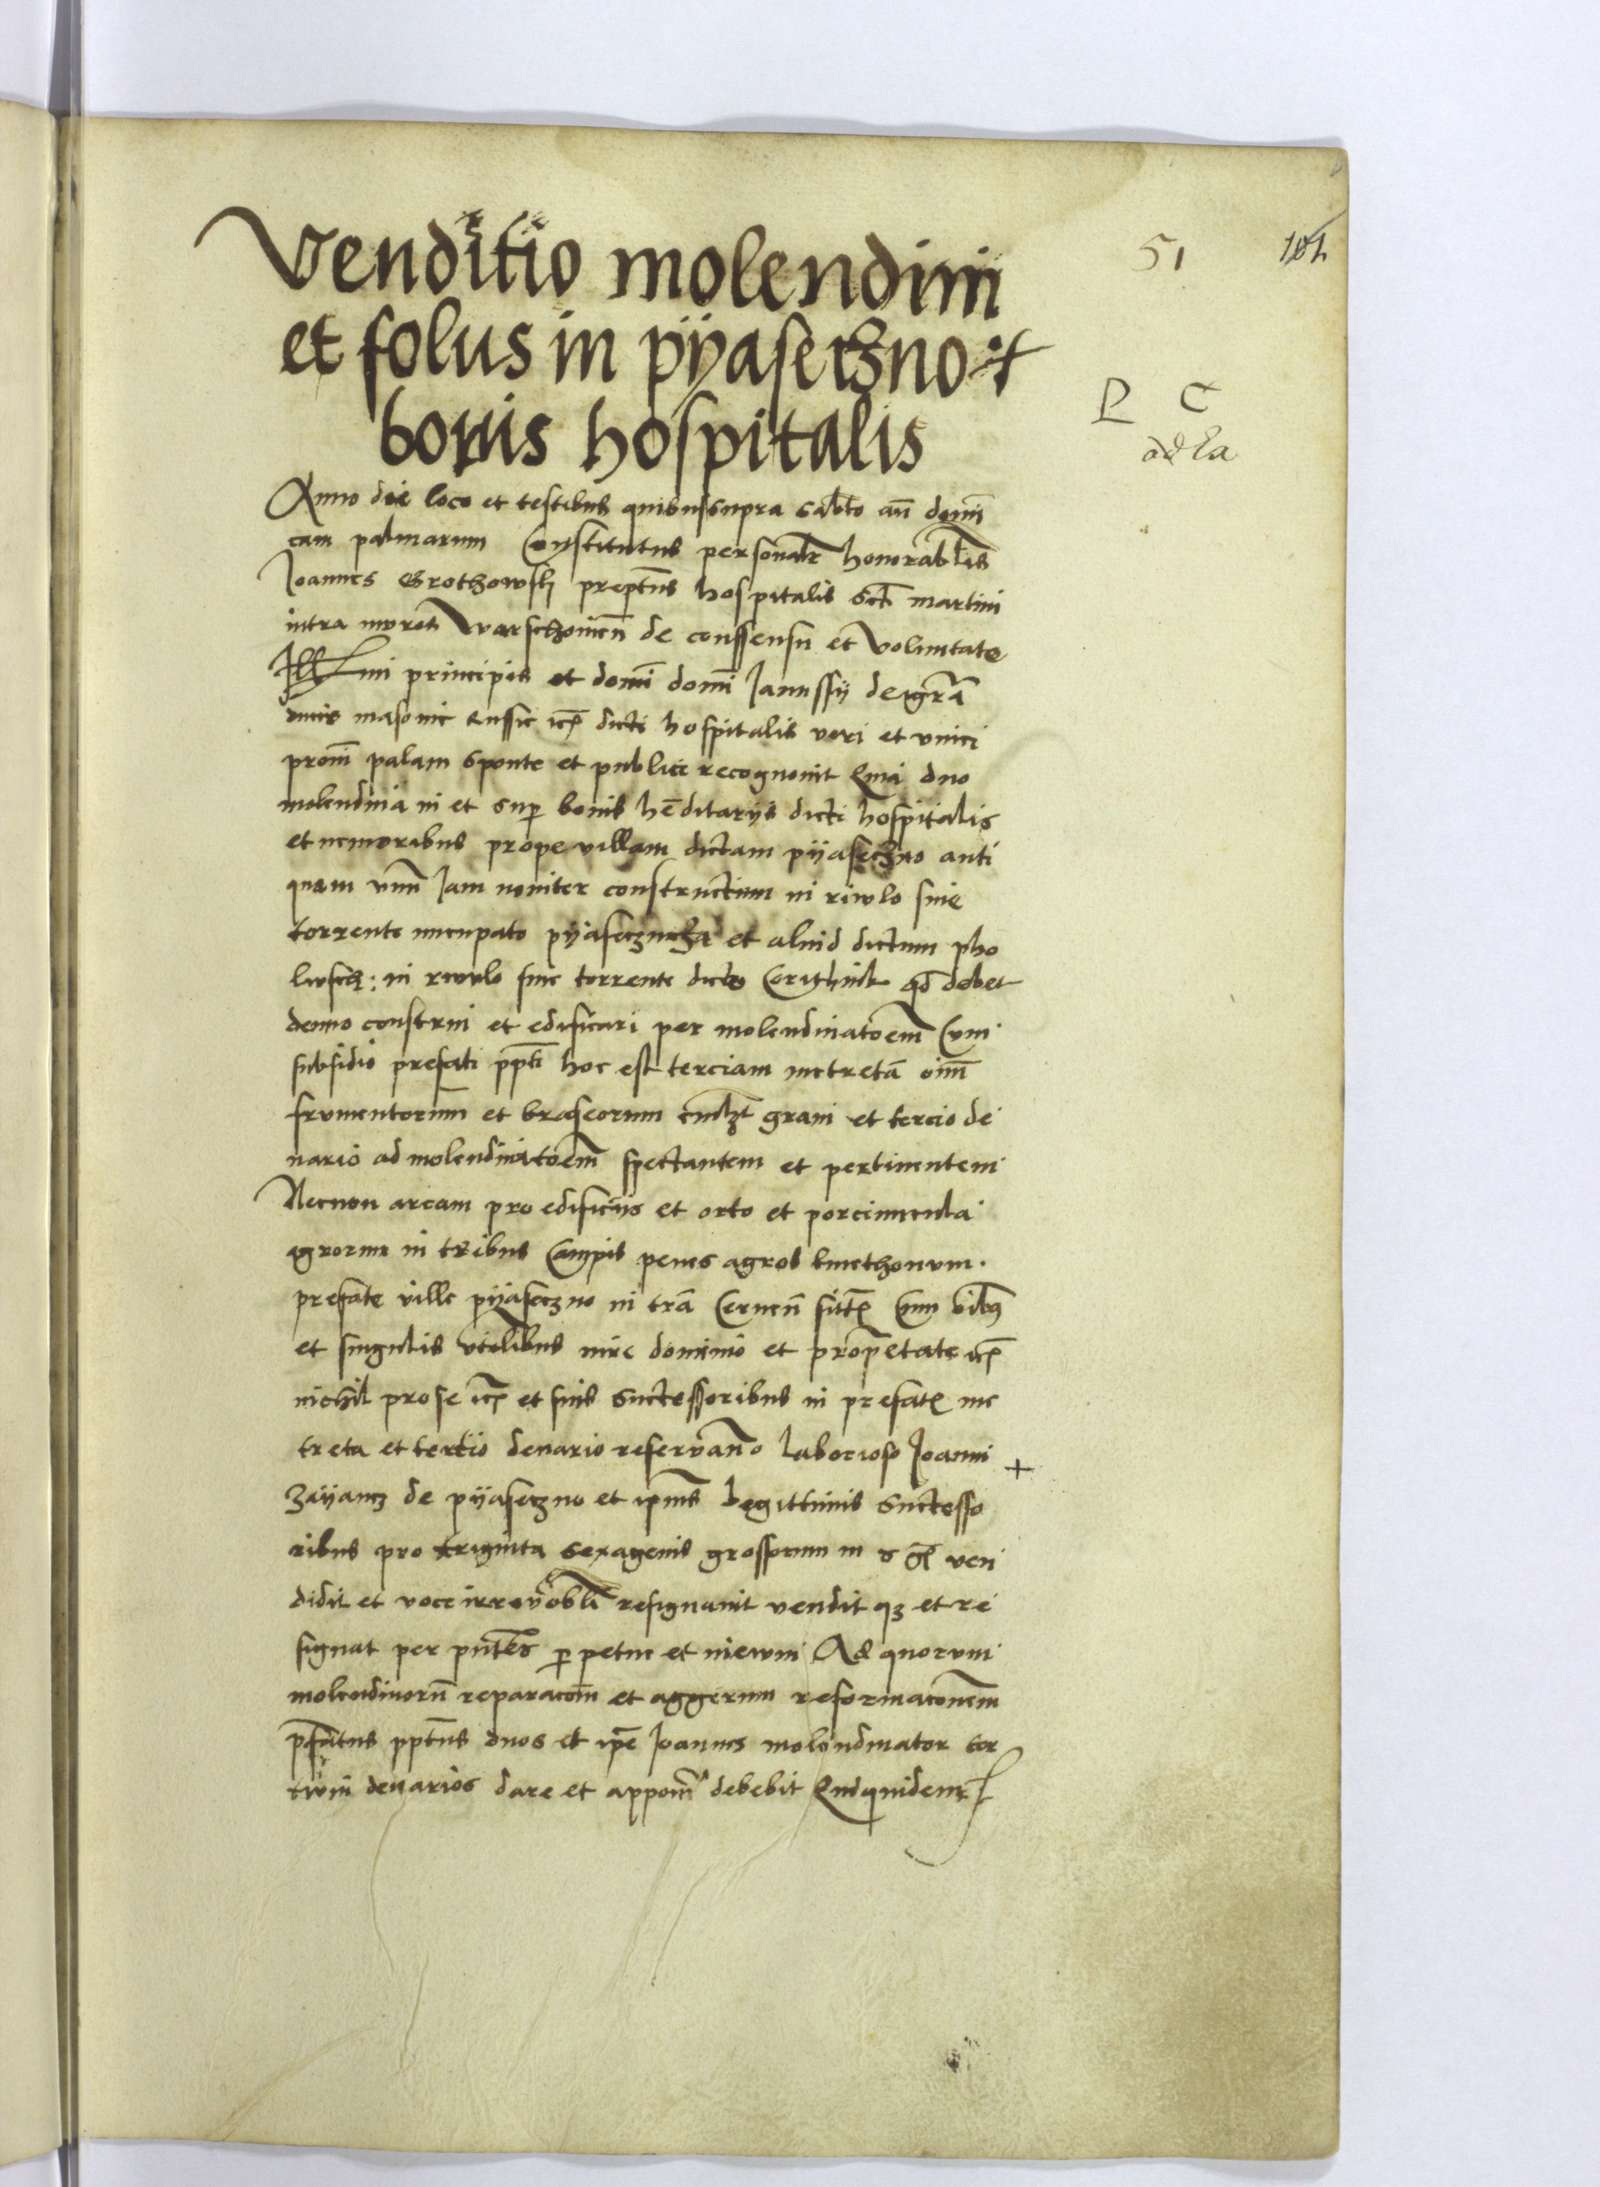 Venditio molendini
et folus in pyaseczno
bonis hospitalis
51
101
P C
Anno die loco et testibus quibussupra Sabbto an domi
cam palmarum Constitutus personalr honorabilis
Joannes Grothowski preptus hospitalis Scti martini
intra muros Warschouien de conssensu et voluntate
Illmi principis et domi domi Janussy dei gra
ducis masouie Russie dicti hospitalis veri et vnici
promi palam sponte et publice recognouit Quia duo
molendina in et sup bonis heditarys dicti hospitalis
et nemoribus prope villam dictam pyaseczno anti
quam vnu Jam nouiter constructum in riwlo siue
torrente nuncupato pyaseczncza et aliud dictum pho
lusch: in riwulo siue torrente dicto qd debet
denuo construi et edificari per molendinatoem Cum
subsidio prefati ppti hoc est terciam metreta oim
frumentorum et braseorum cuiuslibet grani et tercio de
nario ad molendinatoem spectantem et pertinentem
Necnon aream pro edificijs et orto et porciuncula
agrorum in tribus Campis penes agros kmethonum.
prefate ville pyaseczno in tra Cernen Cum oibus
et singulis vtilibus iure dominio et proprietate
nichil pro se et suis Successoribus in prefat me
treta et tertio denario reseruando laborioso Joanni
Zayancz de pyaseczno et ipius Legittimis Successo
ribus pro triginta sexagenis grossorum ven
didit et voce irreuobli resignauit vendit qz et re
signat per pntes ppetue et in ewm Ad quorum
molendinoru reparacom et aggerum reformaconem
pfatus pptus duos et ipe Joannes molendinator ter
cium denarios dare et appone debebit Quiquidem